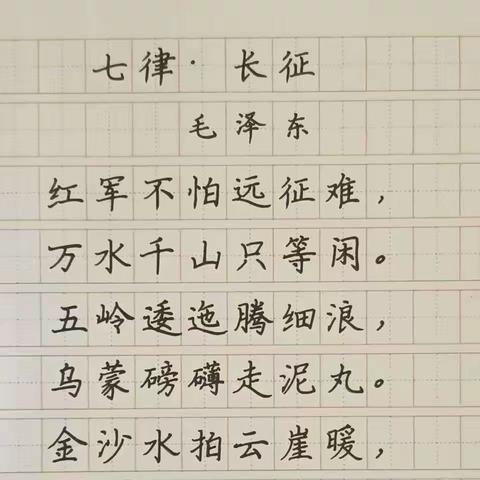 七律·长征
毛泽东
红军不怕远征难，
万水千山只等闲。
五岭逶迤腾细浪，
乌蒙磅礴走泥丸。
金沙水拍云崖暖，